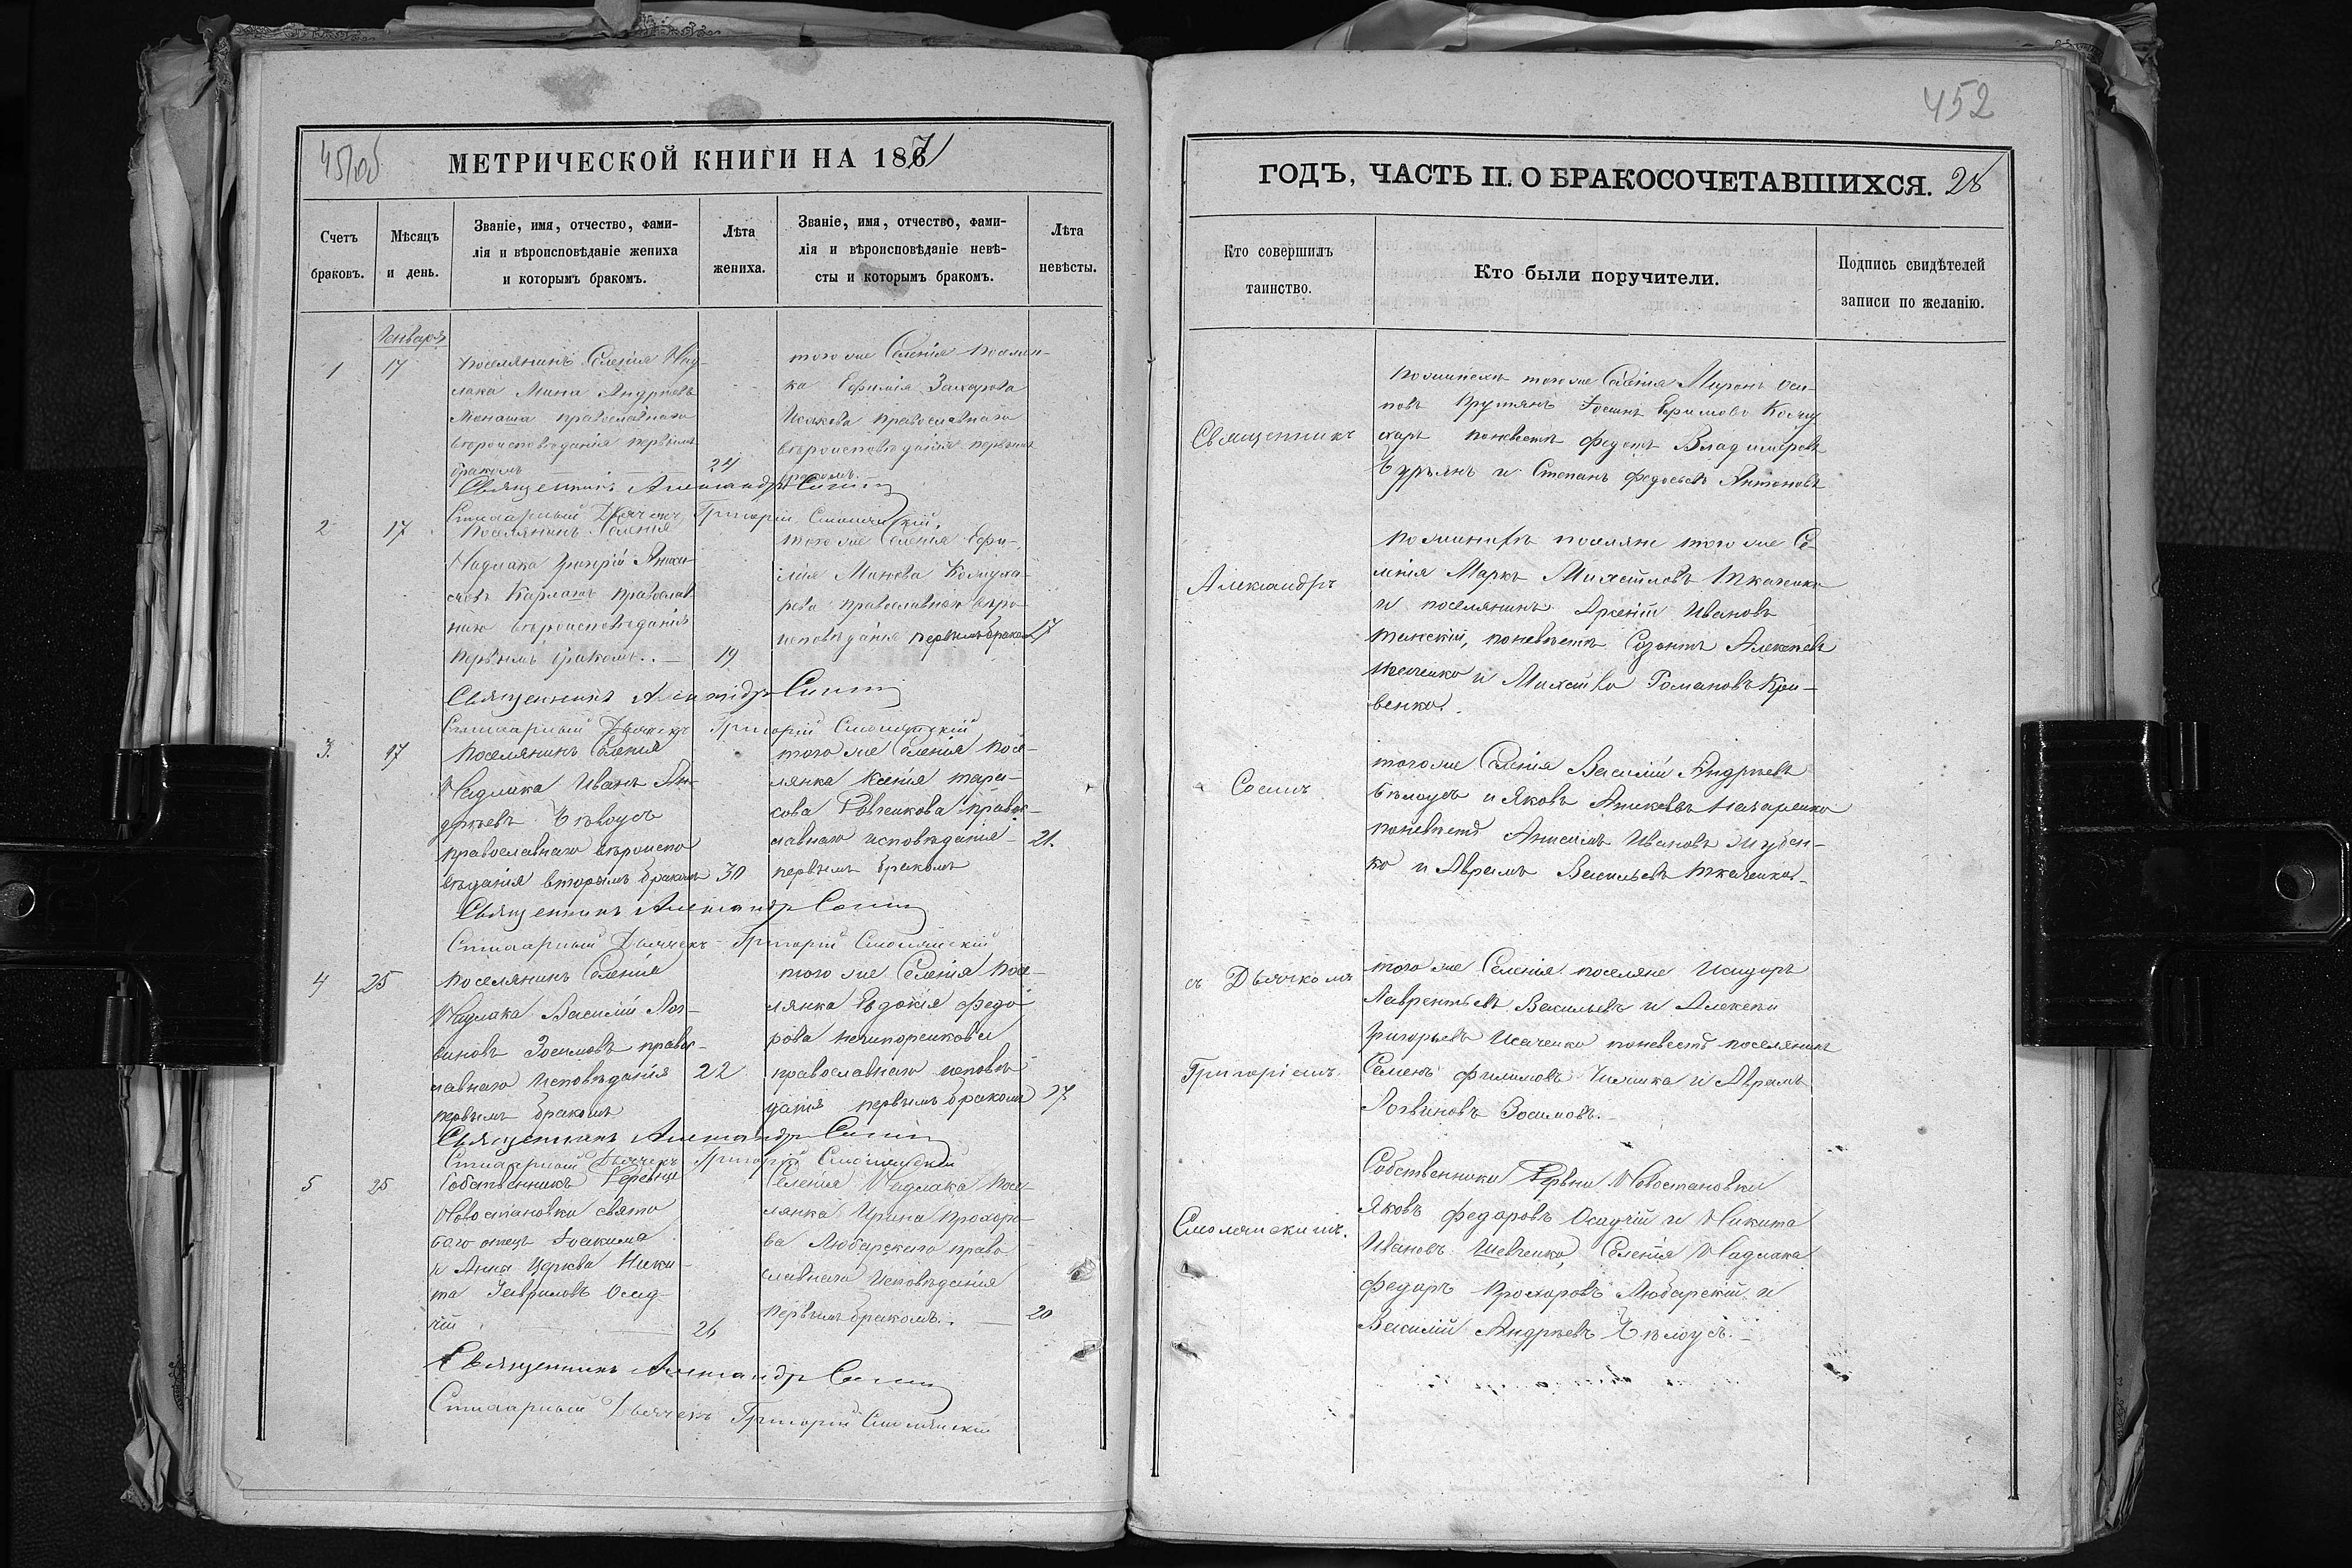 451об
МЕТРИЧЕСКОЙ КНИГИ НА 1871
Счетъ браковъ.
Мѣсяцъ и день.
Званіе, имя, отчество, фами-
лія и вѣроисповѣданіе жениха
и которымъ бракомъ.
Лѣта жениха.
Званіе, имя, отчество, фами-
лія и вѣроисповѣданіе невѣ-
сты и которымъ бракомъ.
Лѣта невѣсты.
Января
1
17
Поселянинъ Селенія Над-
лака Мина Андріевъ
православнаго
вѣроисповѣданія первымъ
бракомъ
24
того же Селенія поселян-
ка Ефимія Захарова
православнаго
вѣроисповѣданія первымъ
бракомъ.
Священникъ Александръ
Дьячекъ Григорій Смолянскій.
2
17
Поселянинъ Селенія
Надлака Григорій
православ
наго вѣроисповѣданія
первымъ бракомъ. —
19
того же Селенія Ефи-
мія Минова
рева православнаго вѣро
исповѣданія первымъ бракомъ
17
Священникъ Александръ
Дьячекъ Григорій Смолянскій
3.
17
Поселянинъ Селенія
Надлака Иванъ Ан-
дреевъ Бѣлоусъ
православнаго вѣроиспо
вѣданія вторымъ бракомъ
30
того же Селенія посе-
лянка Ксенія Тара-
сова правос-
лавнаго исповѣданія
первымъ бракомъ
21.
Священникъ Александръ
Дьячекъ Григорій Смолянскій
4
25
Поселянинъ Селенія
Надлака Василій Лог-
виновъ Зосимовъ правос-
лавнаго исповѣданія
первымъ бракомъ
22
того же Селенія посе-
лянка Евдокія Федо-
рова
православнаго исповѣ
данія первымъ бракомъ
27
Священникъ Александръ
Дьячекъ Григорій Смолянскій
5
25
Собственникъ Деревни
Новостановки свято
баго отецъ Іоакима
и Анны церкви Ники-
та Гавриловъ Осад-
чій
26
Селенія Надлака посе
лянка Ирина Прохоро
ва Любарскаго право
славнаго исповѣданія
первымъ бракомъ. —
20
Священникъ Александръ
Дьячекъ Григорій Смолянскій
452
ГОДЪ, ЧАСТЬ II. О БРАКОСОЧЕТАВШИХСЯ. 28
Кто совершилъ таинство.
Кто были поручители.
Подпись свидѣтелей записи по желанію.
Священникъ
Александръ
съ Дьячкомъ
Григоріемъ
Смолянскимъ.
по женихѣ того же Селенія Миронъ Оси-
повъ Іосифъ Ефимовъ
по невестѣ Федотъ Владимеровъ
Бурьянъ и Степанъ Федосеевъ Антоновъ
по женихѣ поселяне того же Се-
ленія Маркъ Михайловъ Ткаченко
и поселянинъ Арсеній Ивановъ
по невестѣ Созонтъ Алексеевъ
и Михаилъ Романовъ Кри-
венко.
того же Селенія Василій Андреевъ
Бѣлоусъ и Яковъ Назаренко
по невестѣ Анисимъ Ивановъ
ко и Аврамъ Васильевъ Ткаченко
того же Селенія поселяне Исидоръ
Лаврентьевъ Васильевъ и Алексей
Григорьевъ Исаченко по невестѣ поселянинъ
Семенъ Филиповъ и Аврамъ
Логвиновъ Зосимовъ.
Собственники Деревни Новостановки
Яковъ Федоровъ Осадчій и Никита
Ивановъ Шевченко, Селенія Надлака
Федоръ Прохоровъ Любарскій и
Василій Андреевъ Бѣлоусъ.